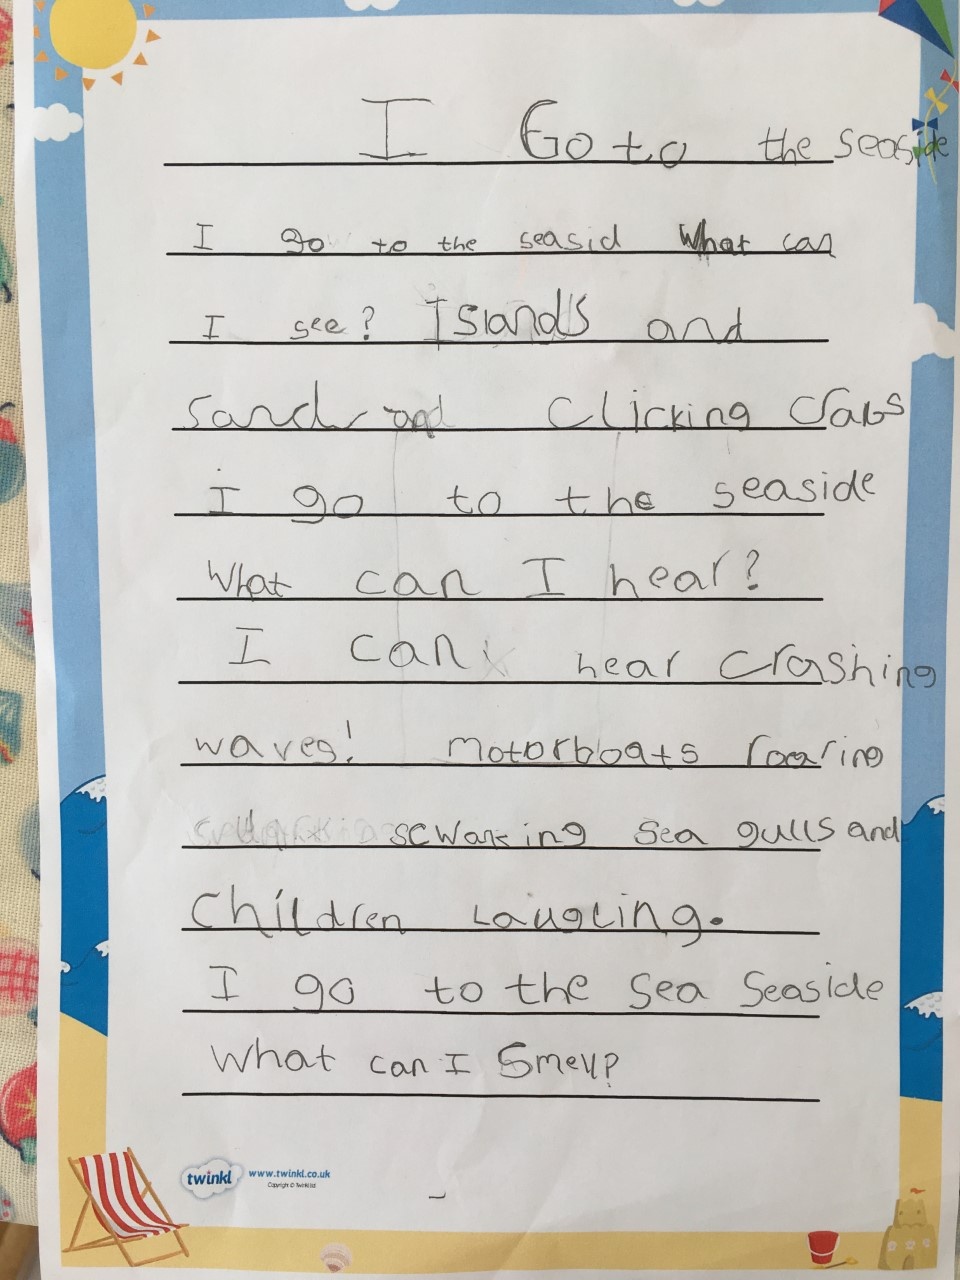 I Go to the seaside
I go to the seasid What can
I see? Islands and
sand and Clicking Crabs
I go to the seaside
What can I hear?
I can hear Crashing
waves! Motorboats roaring
scwarking sea gulls and
Children Laugling.
I go to the sea Seaside
What can I Smell?
twinkl www.twinkl.co.uk